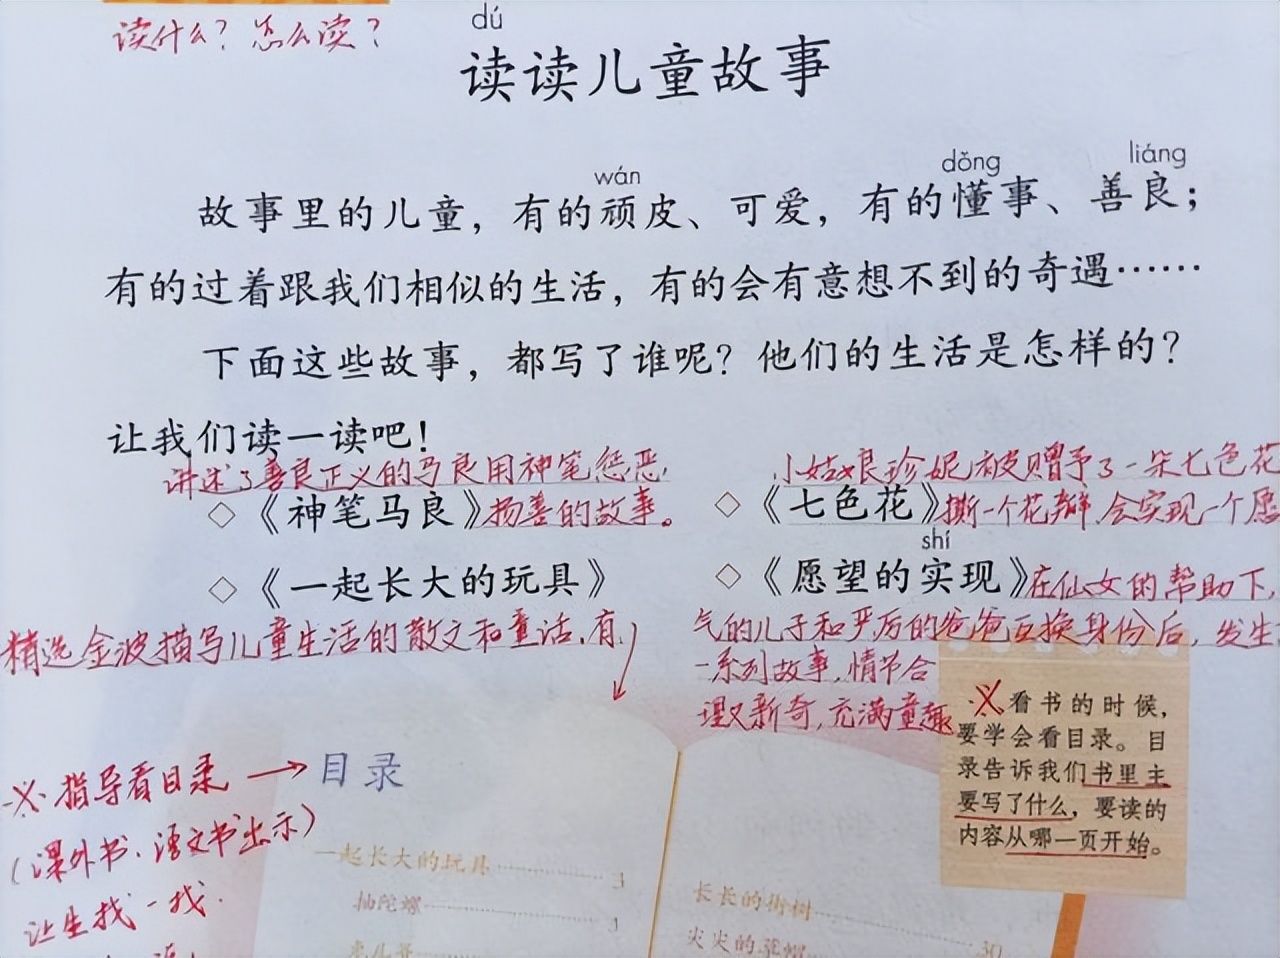 读什么？怎么读？
dú
读读儿童故事
wán dǒng liáng
故事里的儿童，有的顽皮、可爱，有的懂事、善良；
有的过着跟我们相似的生活，有的会有意想不到的奇遇……
下面这些故事，都写了谁呢？他们的生活是怎样的？
让我们读一读吧！
讲述了善良正义的马良用神笔惩恶
小姑娘珍妮被赠予了一朵七色花
◇《神笔马良》扬善的故事。
◇《七色花》撕一个花瓣，会实现一个愿
shí
◇《一起长大的玩具》
◇《愿望的实现》在仙女的帮助下，
精选金波描写儿童生活的散文和童话，有
气的儿子和严厉的爸爸互换身份后，发生
一系列故事，情节合
理又新奇，充满童趣
※看书的时候，
要学会看目录。目
录告诉我们书里主
要写了什么，要读的
内容从哪一页开始。
※指导看目录→目录
（课外书、语文书出示）
让生找一找.
一起长大的玩具……3
抽陀螺……1
兔儿爷
长长的街树……30
尖尖的草帽